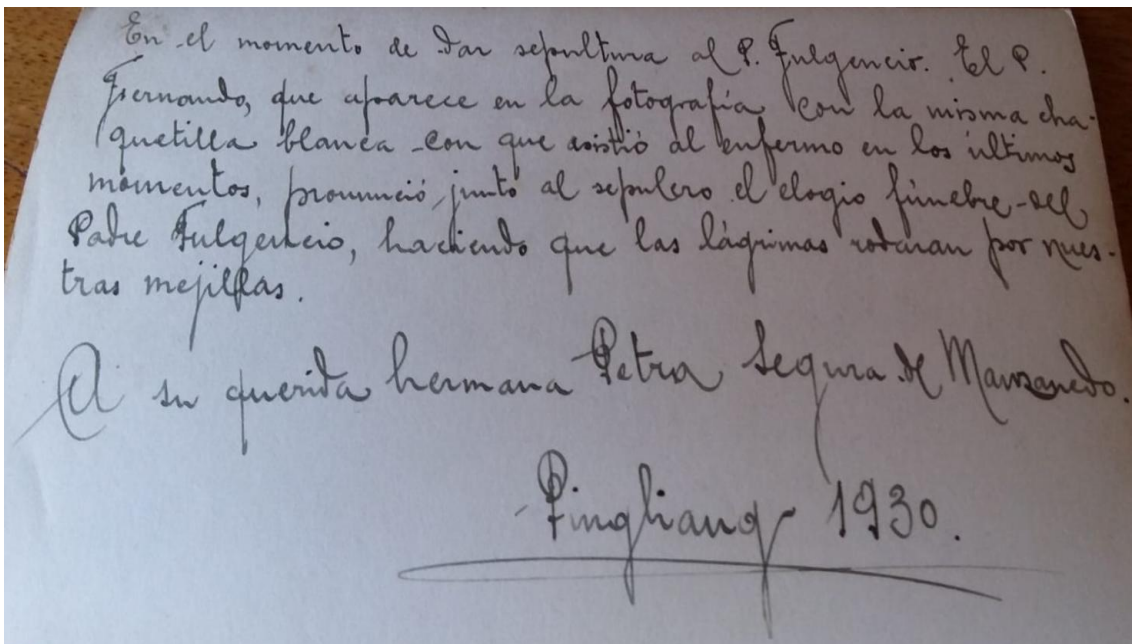 En el momento de dar sepultura al P. Fulgencio. El P.
Fernando, que aparece en la fotografía con la misma cha-
quetilla blanca con que asistió al enfermo en los últimos
momentos, pronunció, junto al sepulcro el elogio fúnebre del
Padre Fulgencio, haciendo que las lágrimas rodaran por nues-
tras mejillas.
A su querida hermana Petra Segura de Manzanedo.
Pingliang 1930.